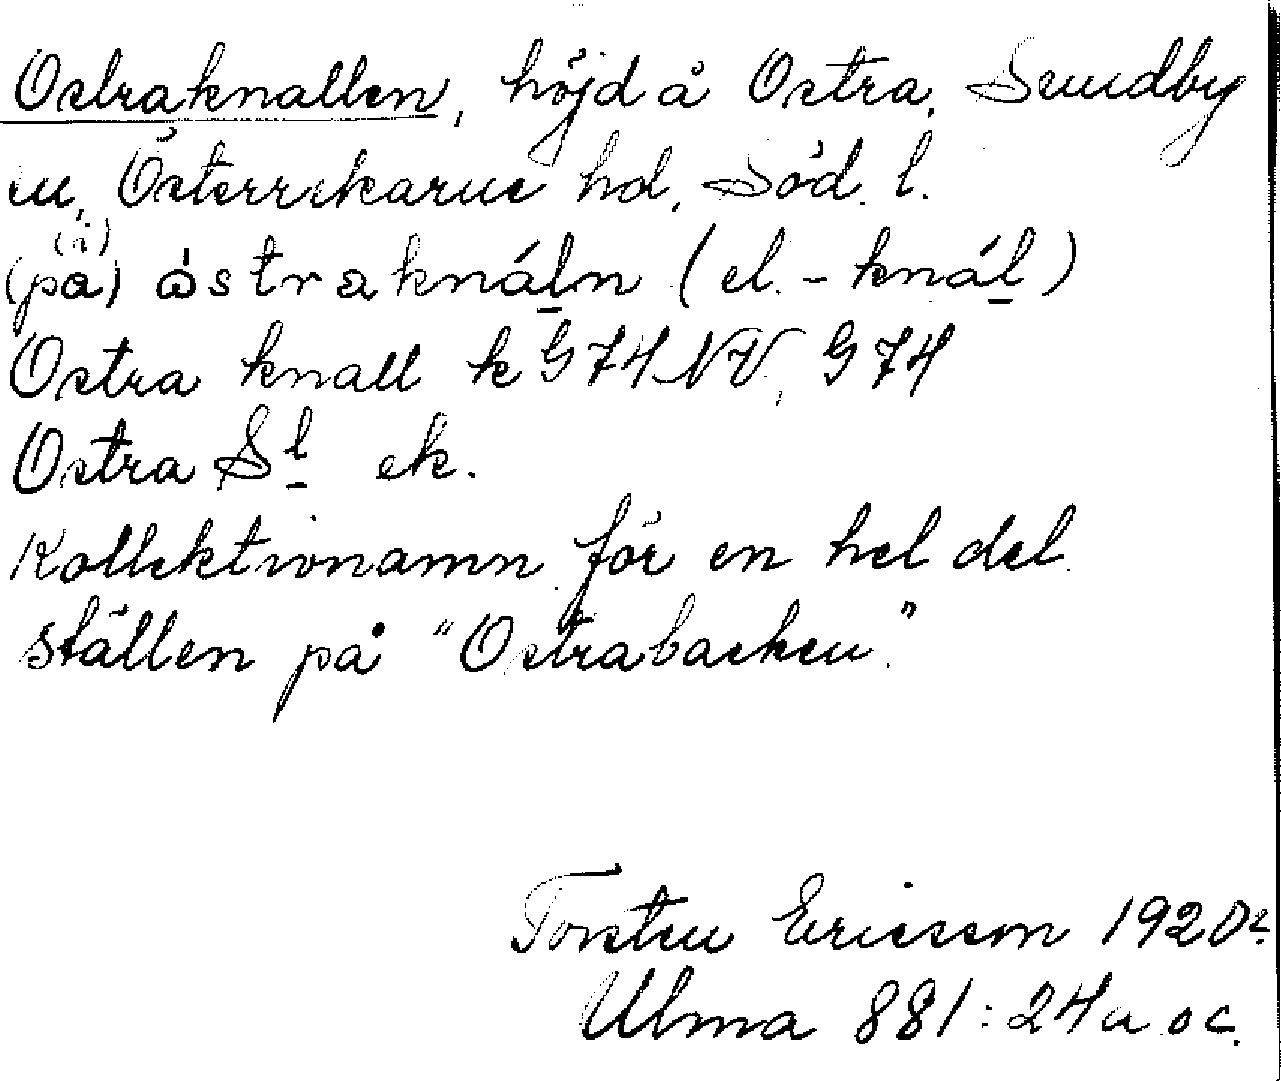 Ostraknallen, höjd å Ostra, Sundby
sn, Österrekarne hd, Söd. l.
(på) (i) åstraknáln (el. -knál)
Ostra knall k G74NV, G74
Ostra Sl ek.
Kollektivnamn för en hel del
ställen på "Ostrabacken".
Torsten Ericsson 1920
Ulma 881:24a oc.